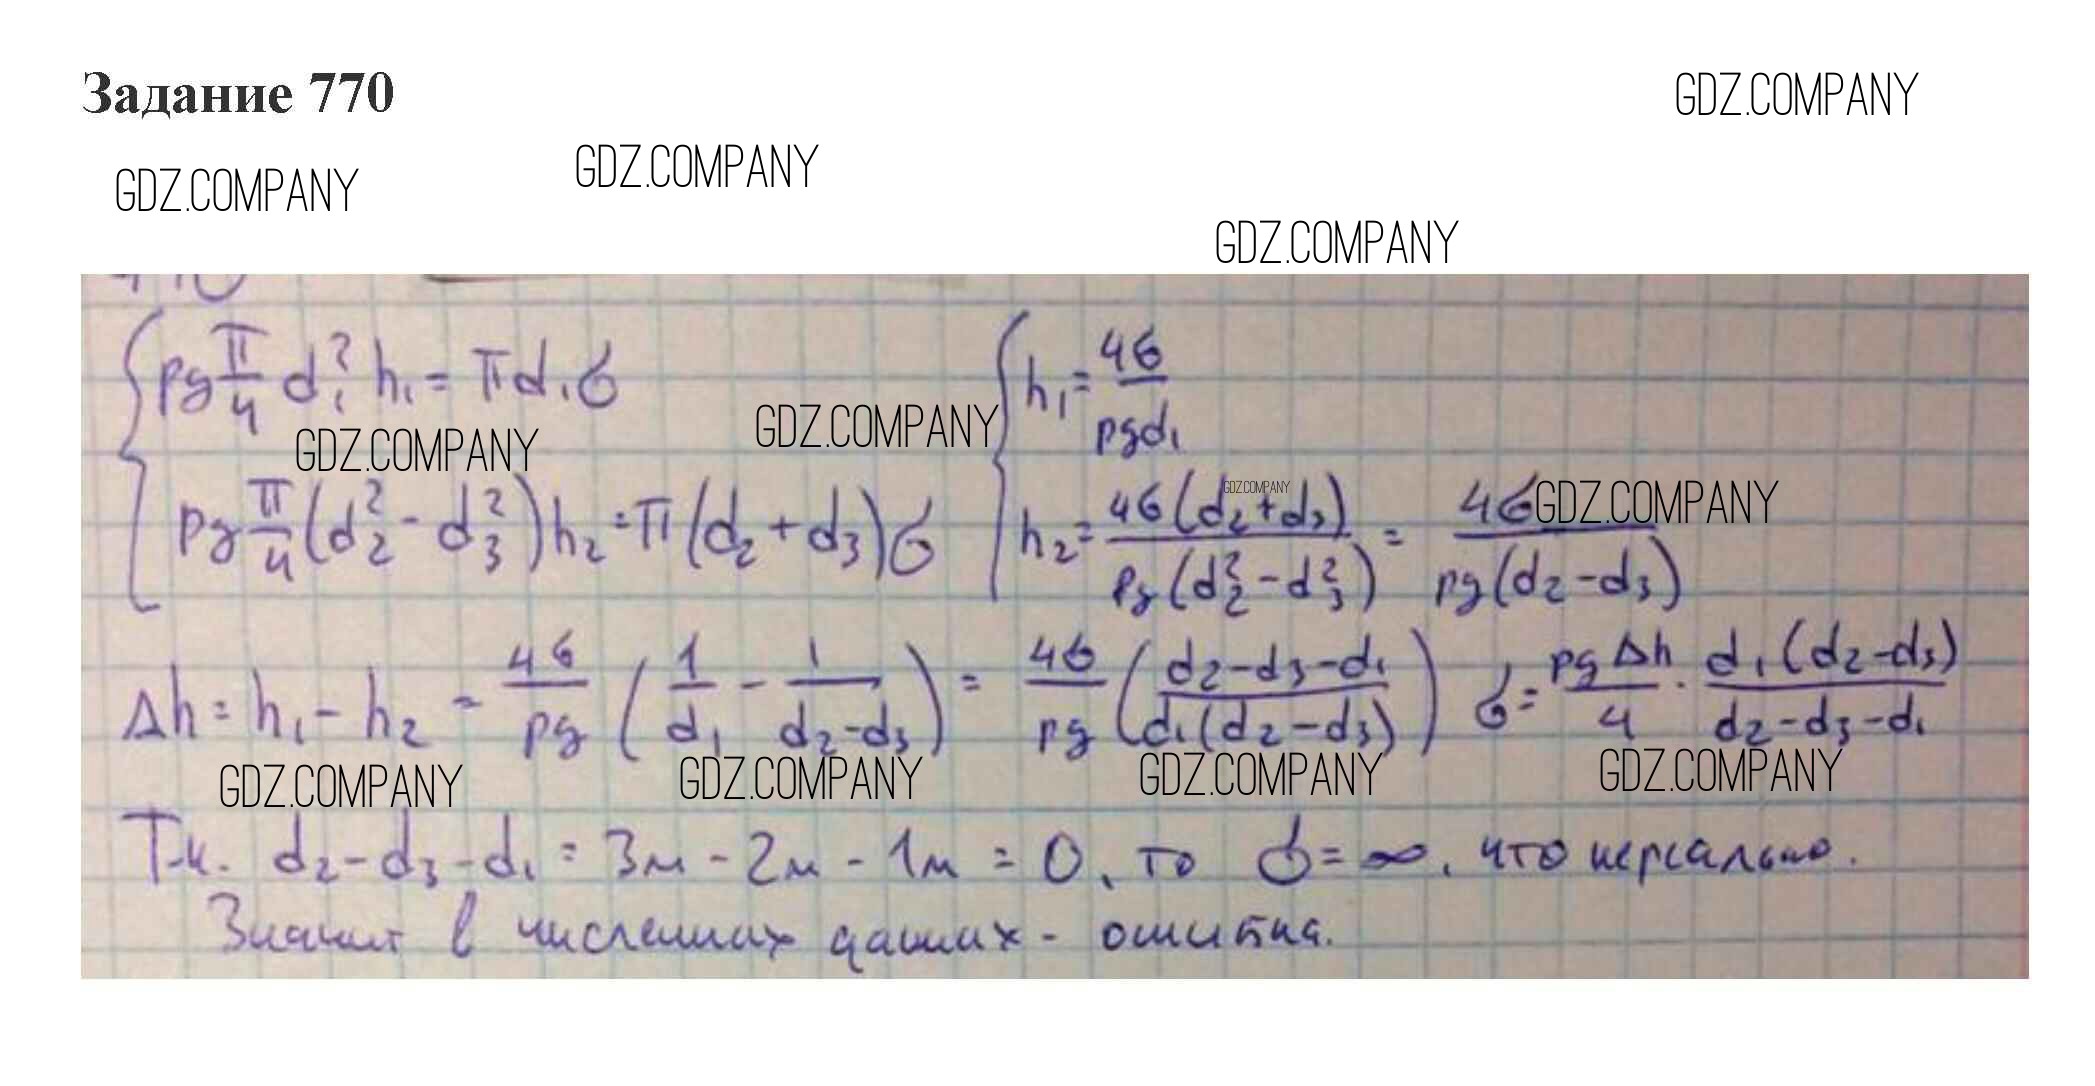 Задание 770
GDZ.COMPANY
GDZ.COMPANY
GDZ.COMPANY
GDZ.COMPANY
{ρg π/4 d₁² h₁ = πd₁σ { h₁ = 4σ/ρgd₁
GDZ.COMPANY GDZ.COMPANY
ρg π/4 (d₂² - d₃²) h₂ = π(d₂ + d₃)σ h₂ = 4σ(d₂+d₃)/ρg(d₂² - d₃²) = 4σ/ρg(d₂ - d₃)
GDZ.COMPANY GDZ.COMPANY
Δh = h₁ - h₂ = 4σ/ρg (1/d₁ - 1/(d₂-d₃)) = 4σ/ρg ((d₂-d₃-d₁)/(d₁(d₂-d₃))) σ = ρgΔh/4 · d₁(d₂-d₃)/(d₂-d₃-d₁)
GDZ.COMPANY GDZ.COMPANY GDZ.COMPANY GDZ.COMPANY
Т.к. d₂ - d₃ - d₁ = 3м - 2м - 1м = 0, то σ = ∞, что нереально.
Значит в численных данных - ошибка.